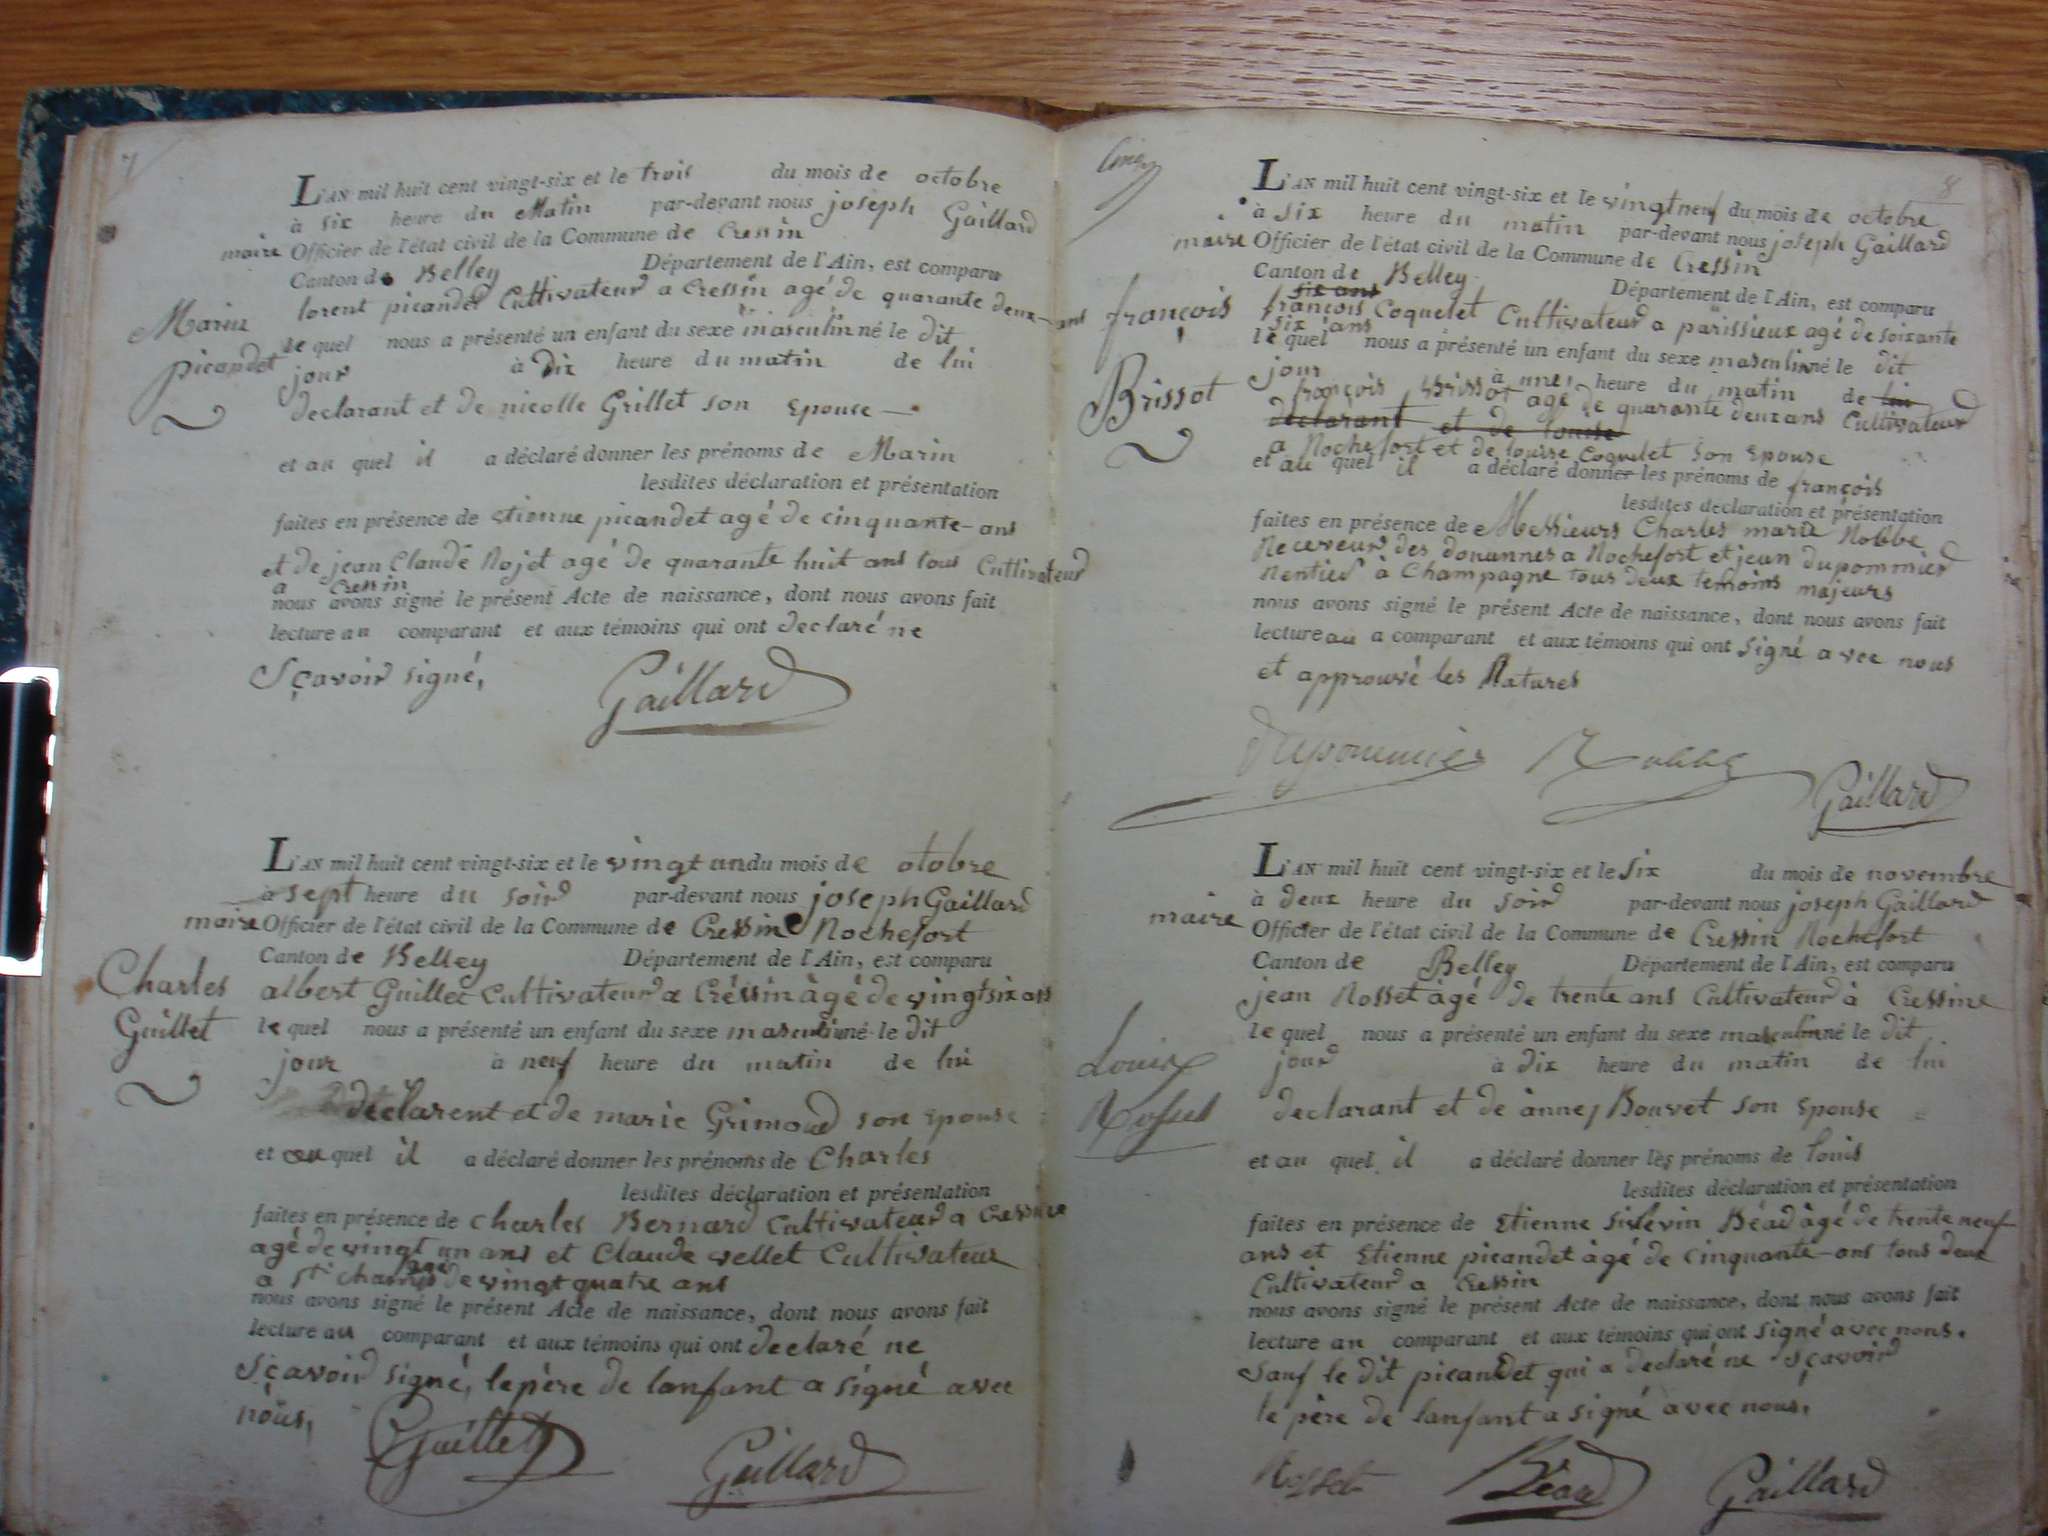 7
L'AN mil huit cent vingt-six et le trois du mois de octobre
à six heure du Matin par-devant nous joseph Gaillard
maire Officier de l'état civil de la Commune de Cressin
Canton de Belley Département de l'Ain, est comparu
lorent picandet Cultivateur a Cressin agé de quarante deux-ans
Marin
picandet
le quel nous a présenté un enfant du sexe masculin né le dit
jour à dix heure du matin de lui
declarant et de nicolle Grillet son Epouse
et au quel il a déclaré donner les prénoms de Marin
lesdites déclaration et présentation
faites en présence de etienne picandet agé de cinquante-ans
et de jean Claude Rojet agé de quarante huit ans tous Cultivateur
a Cressin
nous avons signé le présent Acte de naissance, dont nous avons fait
lecture au comparant et aux témoins qui ont declaré ne
Sçavoir signé,
Gaillard
L'AN mil huit cent vingt-six et le vingt un du mois de otobre
à sept heure du soir par-devant nous joseph Gaillard
maire Officier de l'état civil de la Commune de Cressin Rochefort
Canton de Belley Département de l'Ain, est comparu
Charles
Guillet
albert Guillet Cultivateur a Créssin âgé de vingt six ans
le quel nous a présenté un enfant du sexe masculin né le dit
jour à neuf heure du matin de lui
declarent et de marie Grimond son Epouse
et au quel il a déclaré donner les prénoms de Charles
lesdites déclaration et présentation
faites en présence de Charles Bernard Cultivateur a Cressin
agé de vingt un ans et Claude vellet Cultivateur
a St agé de vingt quatre ans
nous avons signé le présent Acte de naissance, dont nous avons fait
lecture au comparant et aux témoins qui ont declaré ne
Sçavoir signé, le père de lanfant a signé avec
nous,
Guillet Gaillard
8
L'AN mil huit cent vingt-six et le vingt neuf du mois de octobre
à six heure du matin par-devant nous joseph Gaillard
maire Officier de l'état civil de la Commune de Cressin
Canton de Belley Département de l'Ain, est comparu
six ans
françois
Brissot
françois Coquelet Cultivateur a parissieux agé de soixante
six ans
le quel nous a présenté un enfant du sexe masculin né le dit
jour à une heure du matin de lui
françois Brissot agé de quarante deux ans Cultivateur
declarant et de louise
a Rochefort et de louise Coquelet son Epouse
et au quel il a déclaré donner les prénoms de françois
lesdites déclaration et présentation
faites en présence de Messieurs Charles marie Nobbe
Receveur des douannes a Rochefort et jean dupommier
Rentier à Champagne tous deux temoins majeurs
nous avons signé le présent Acte de naissance, dont nous avons fait
lecture au a comparant et aux témoins qui ont signé avec nous
et approuvé les Ratures
Dupommier Nobbe Gaillard
L'AN mil huit cent vingt-six et le six du mois de novembre
à deux heure du soir par-devant nous joseph Gaillard
maire Officier de l'état civil de la Commune de Cressin Rochefort
Canton de Belley Département de l'Ain, est comparu
jean Rosset àgé de trente ans Cultivateur à Cressine
Louis
Rosset
le quel nous a présenté un enfant du sexe masculin né le dit
jour à dix heure du matin de lui
declarant et de anne Bouvet son Epouse
et au quel il a déclaré donner les prénoms de louis
lesdites déclaration et présentation
faites en présence de Etienne Béad âgé de trente neuf
ans et Etienne picandet àgé de cinquante-ans tous deux
Cultivateur a Cressin
nous avons signé le présent Acte de naissance, dont nous avons fait
lecture au comparant et aux témoins qui ont signé avec nous.
Sauf le dit picandet qui a declaré ne Sçavoir
le père de lanfant a signé avec nous,
Rosset Béad Gaillard